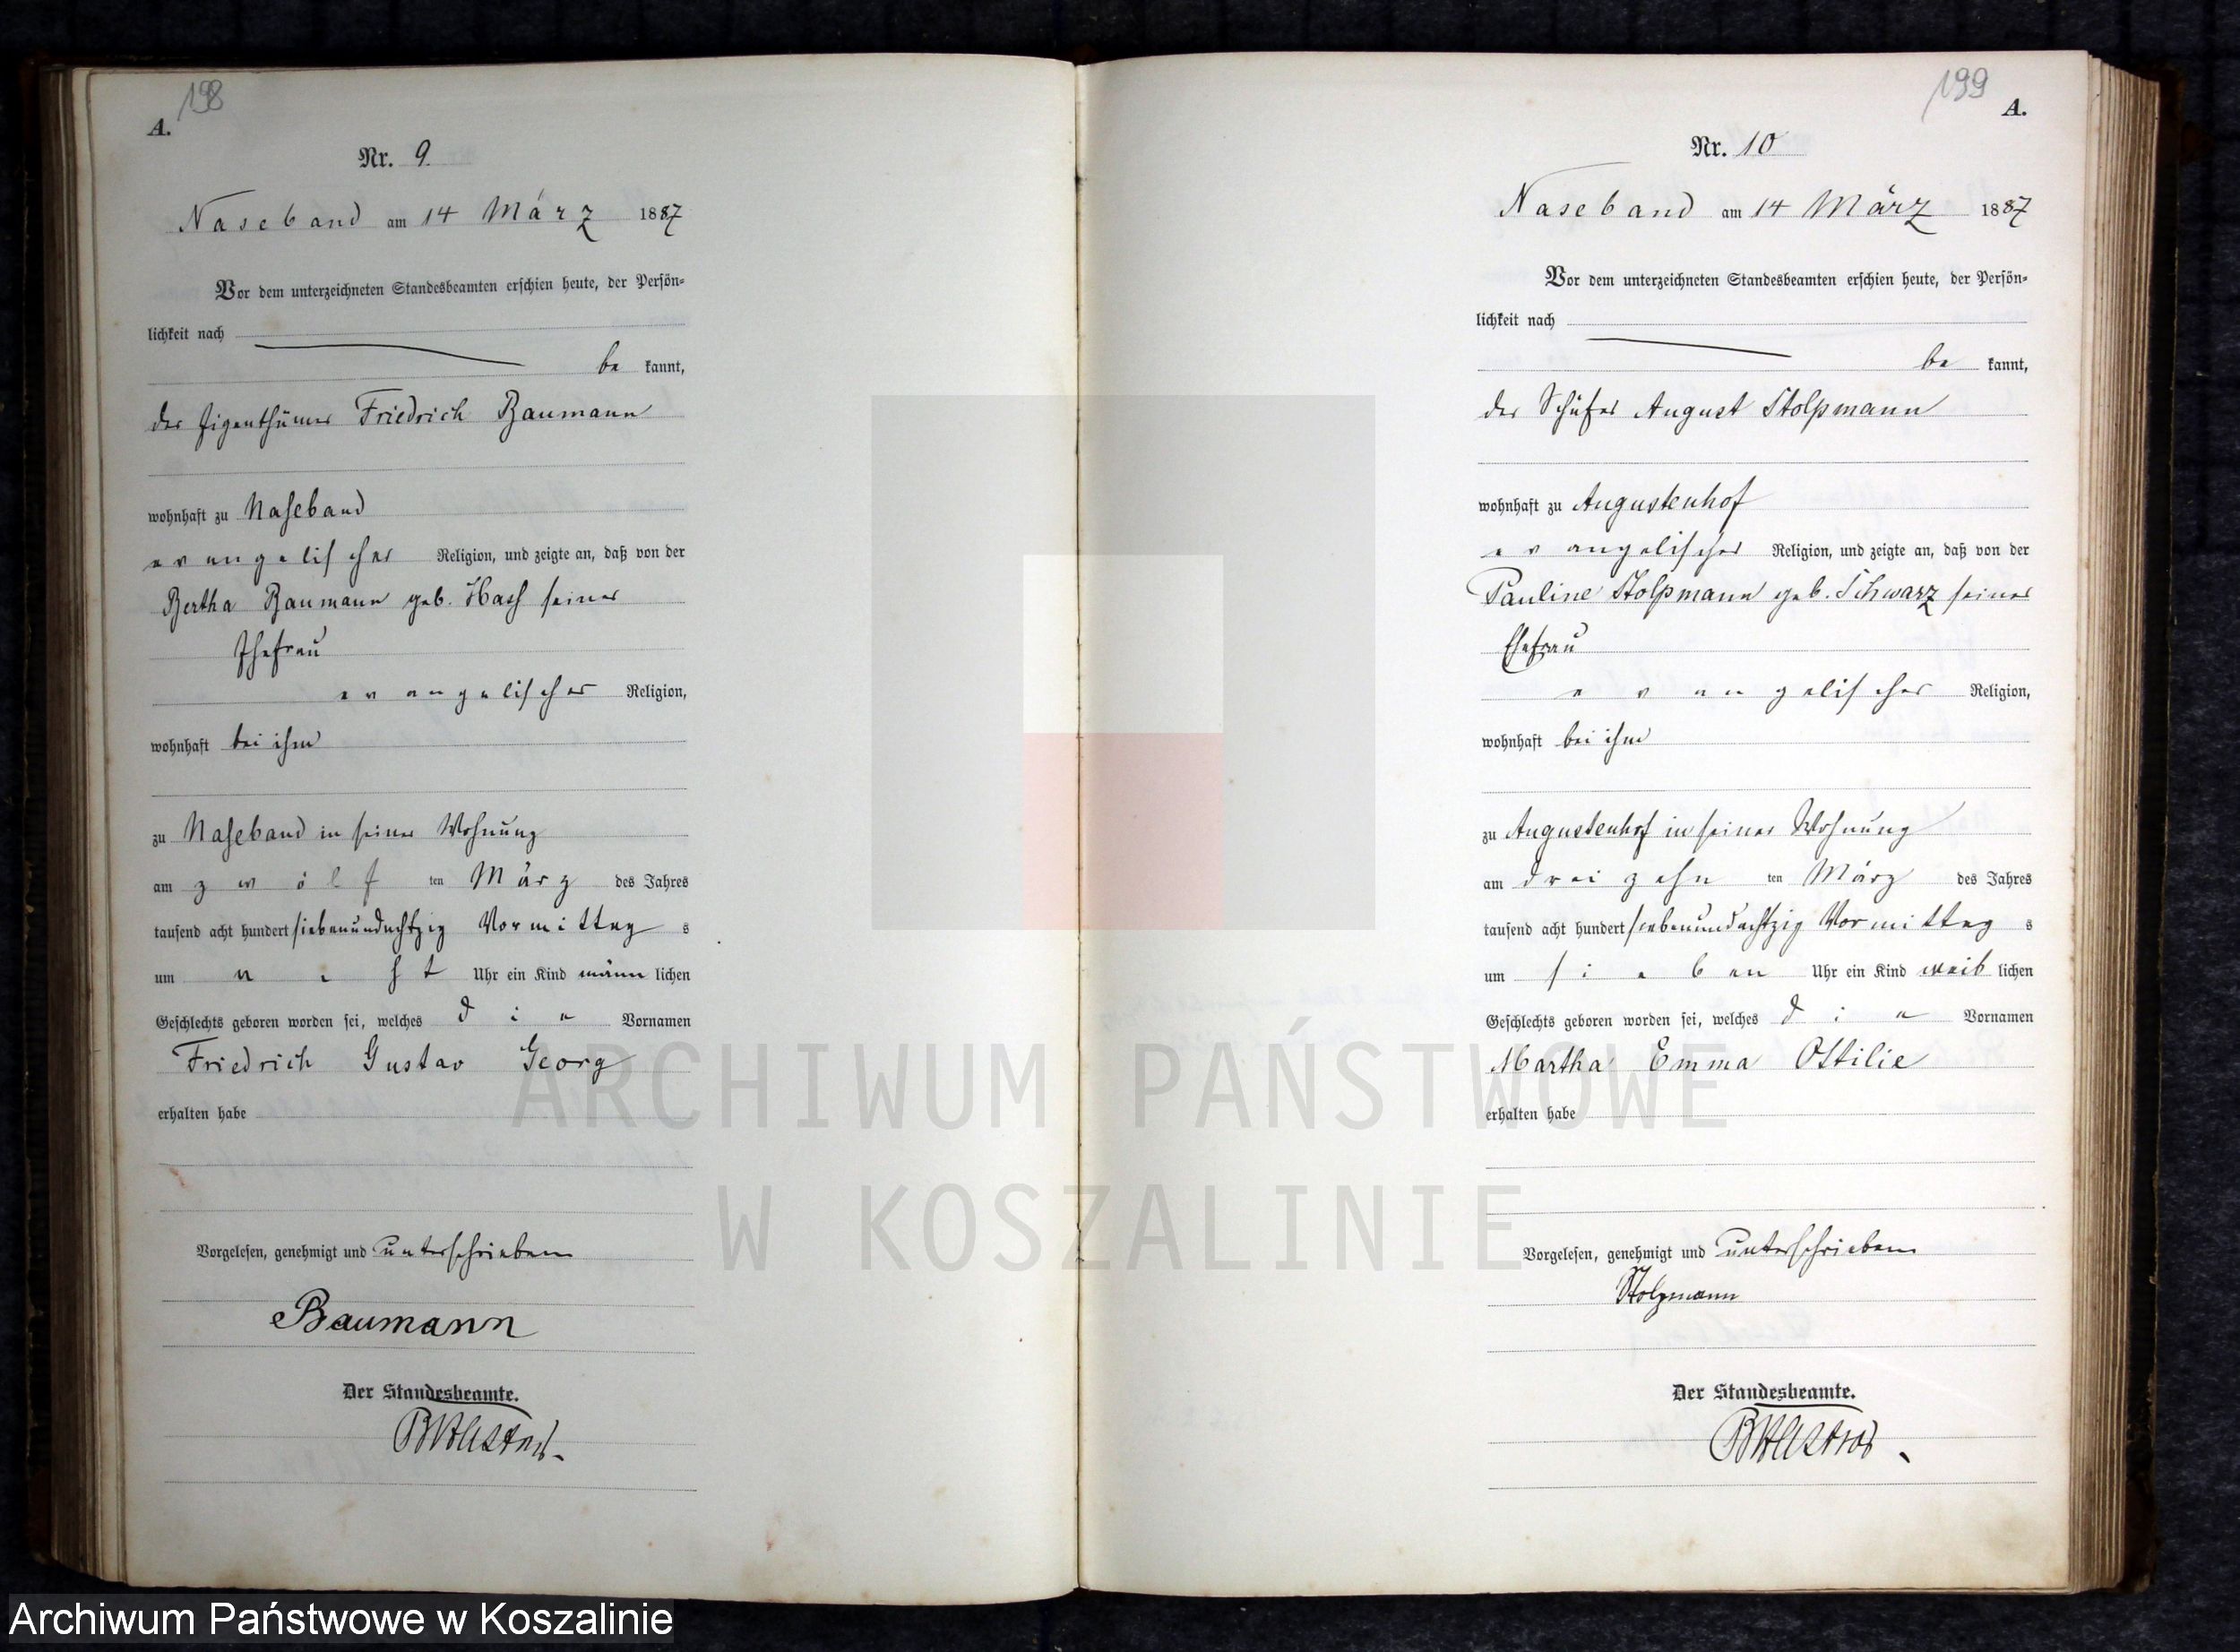 198
A.
Nr. 9.
Naseband am 14 März 1887
Vor dem unterzeichneten Standesbeamten erschien heute, der Persön-
lichkeit nach
be kannt,
der Eigenthümer Friedrich Baumann
wohnhaft zu Naseband
evangelischer Religion, und zeigte an, daß von der
Bertha Baumann geb. Hass seiner
Ehefrau
evangelischer Religion,
wohnhaft bei ihm
zu Naseband in seiner Wohnung
am zwölf ten März des Jahres
tausend acht hundert siebenundachtzig Vormittag s
um acht Uhr ein Kind männ lichen
Geschlechts geboren worden sei, welches die Vornamen
Friedrich Gustav Georg
erhalten habe
Vorgelesen, genehmigt und unterschrieben
Baumann
Der Standesbeamte.
199
A.
Nr. 10
Naseband am 14 März 1887
Vor dem unterzeichneten Standesbeamten erschien heute, der Persön-
lichkeit nach
be kannt,
der Schäfer August Stolpmann
wohnhaft zu Augustenhof
evangelischer Religion, und zeigte an, daß von der
Pauline Stolpmann geb. Schwarz seiner
Ehefrau
evangelischer Religion,
wohnhaft bei ihm
zu Augustenhof in seiner Wohnung
am dreizehn ten März des Jahres
tausend acht hundert siebenundachtzig Vormittag s
um sieben Uhr ein Kind weib lichen
Geschlechts geboren worden sei, welches die Vornamen
Martha Emma Ottilie
erhalten habe
Vorgelesen, genehmigt und unterschrieben
Stolpmann
Der Standesbeamte.
ARCHIWUM PAŃSTWOWE
W KOSZALINIE
Archiwum Państwowe w Koszalinie